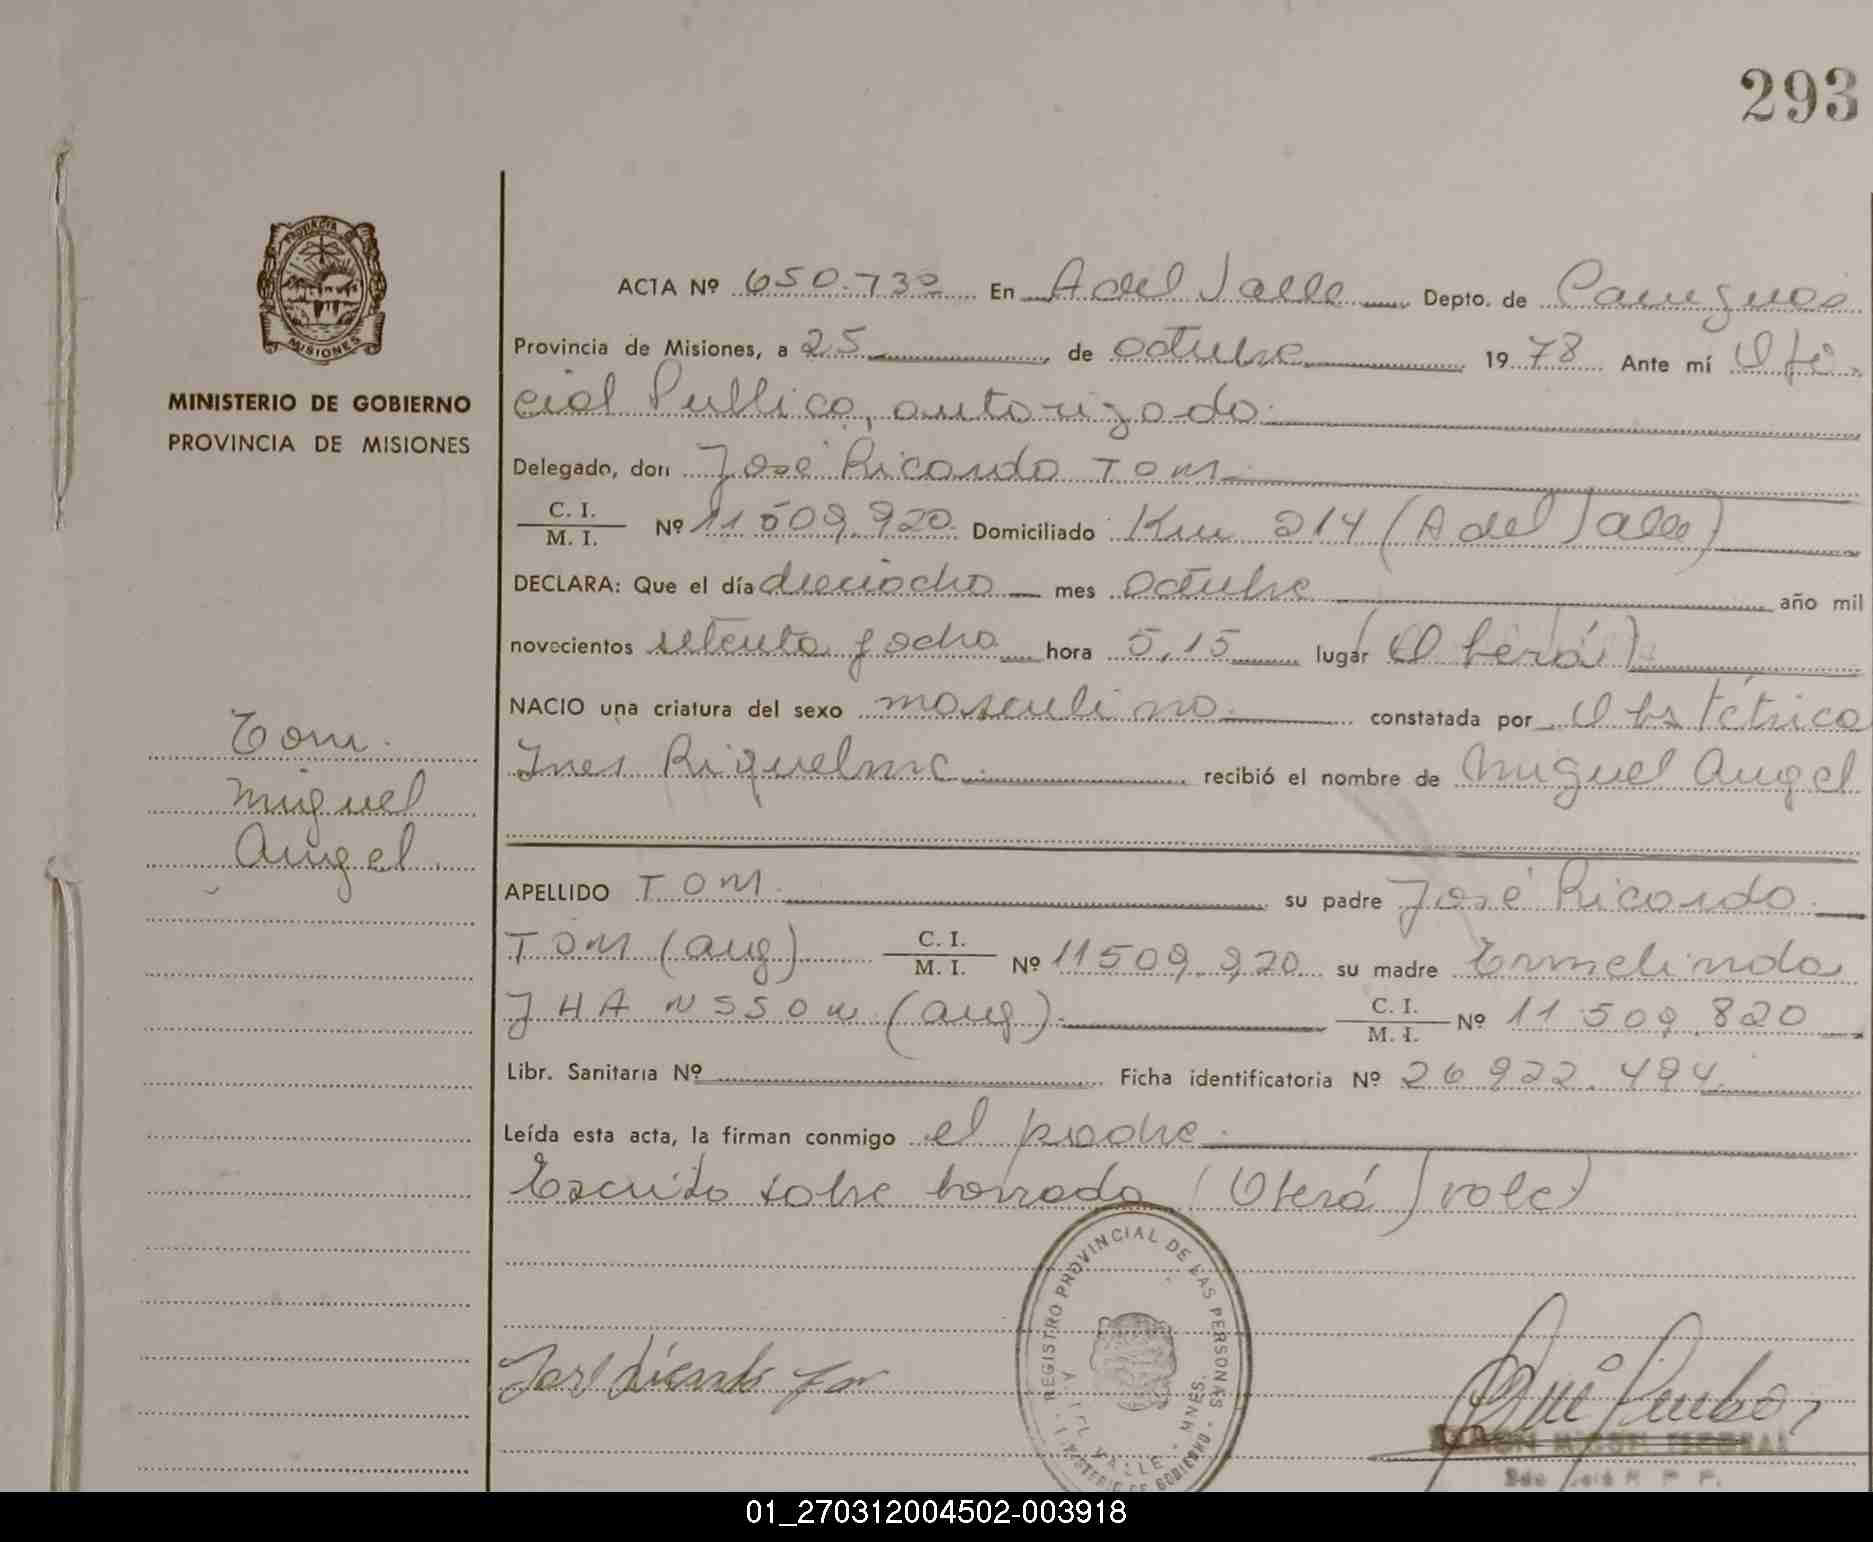 293
PROVINCIA DE
MISIONES
MINISTERIO DE GOBIERNO
PROVINCIA DE MISIONES
Tom.
Miguel
Angel.
ACTA Nº 650.730 En A del Valle Depto. de Cainguas
Provincia de Misiones, a 25 de octubre 1978 Ante mí Ofi-
cial Publico, autorizado.
Delegado, don José Ricardo TOM
C. I. / M. I. Nº 11 509.920. Domiciliado Km 214 (A del Valle)
DECLARA: Que el día dieciocho mes octubre año mil
novecientos setenta y ocho hora 5,15 lugar (Oberá)
NACIO una criatura del sexo masculino. constatada por Obstétrica
Ines Riquelme. recibió el nombre de Miguel Angel
APELLIDO TOM. su padre José Ricardo
TOM (arg) C. I. / M. I. Nº 11509.920 su madre Ermelinda
JHANSSON (arg). C. I. / M. I. Nº 11.509.820
Libr. Sanitaria Nº Ficha identificatoria Nº 26922.494
Leída esta acta, la firman conmigo el padre.
Escrito sobre borrado (Oberá) vale)
REGISTRO PROVINCIAL DE LAS PERSONAS
VALLE - MNES.
DE GOBIERNO
José Ricardo Tom
01_270312004502-003918